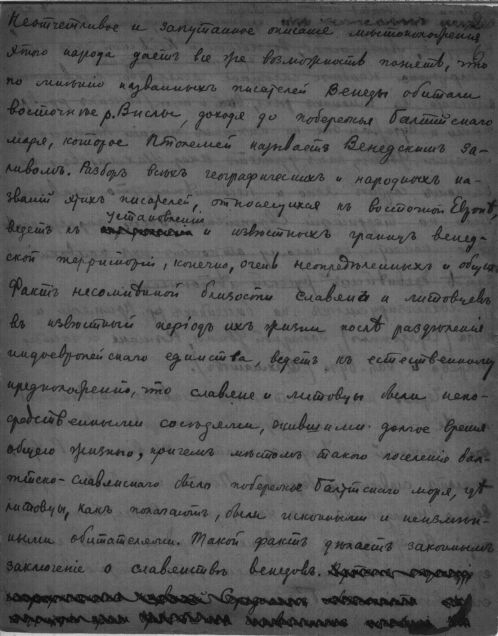 Неотчетливое и запутанное описание мѣстоположенія
этого народа даетъ все же возможность понять, что
по мнѣнію названныхъ писателей Венеды обитали
восточнѣе р. Вислы, доходя до побережья Балтійскаго
моря, которое Птолемей называетъ Венедскимъ за-
ливомъ. Разборъ всѣхъ географическихъ и народныхъ на-
званій этихъ писателей, относящихся къ восточной Европѣ,
установленію
ведетъ къ и извѣстныхъ границъ венед-
ской территоріи, конечно, очень неопредѣленныхъ и общихъ
Фактъ несомнѣнной близости славянъ и литовцевъ
въ извѣстный періодъ ихъ жизни послѣ раздѣленія
индоевропейскаго единства, ведетъ къ естественному
предположенію, что славяне и литовцы были непо-
средственными сосѣдями, жившими долгое время
общею жизнью, причемъ мѣстомъ такого поселенія бал-
тійско-славянскаго было побережье Балтійскаго моря, гдѣ
литовцы, какъ полагаютъ, были исконными и неизмѣн-
ными обитателями. Такой фактъ дѣлаетъ законнымъ
заключеніе о славянствѣ венедовъ.